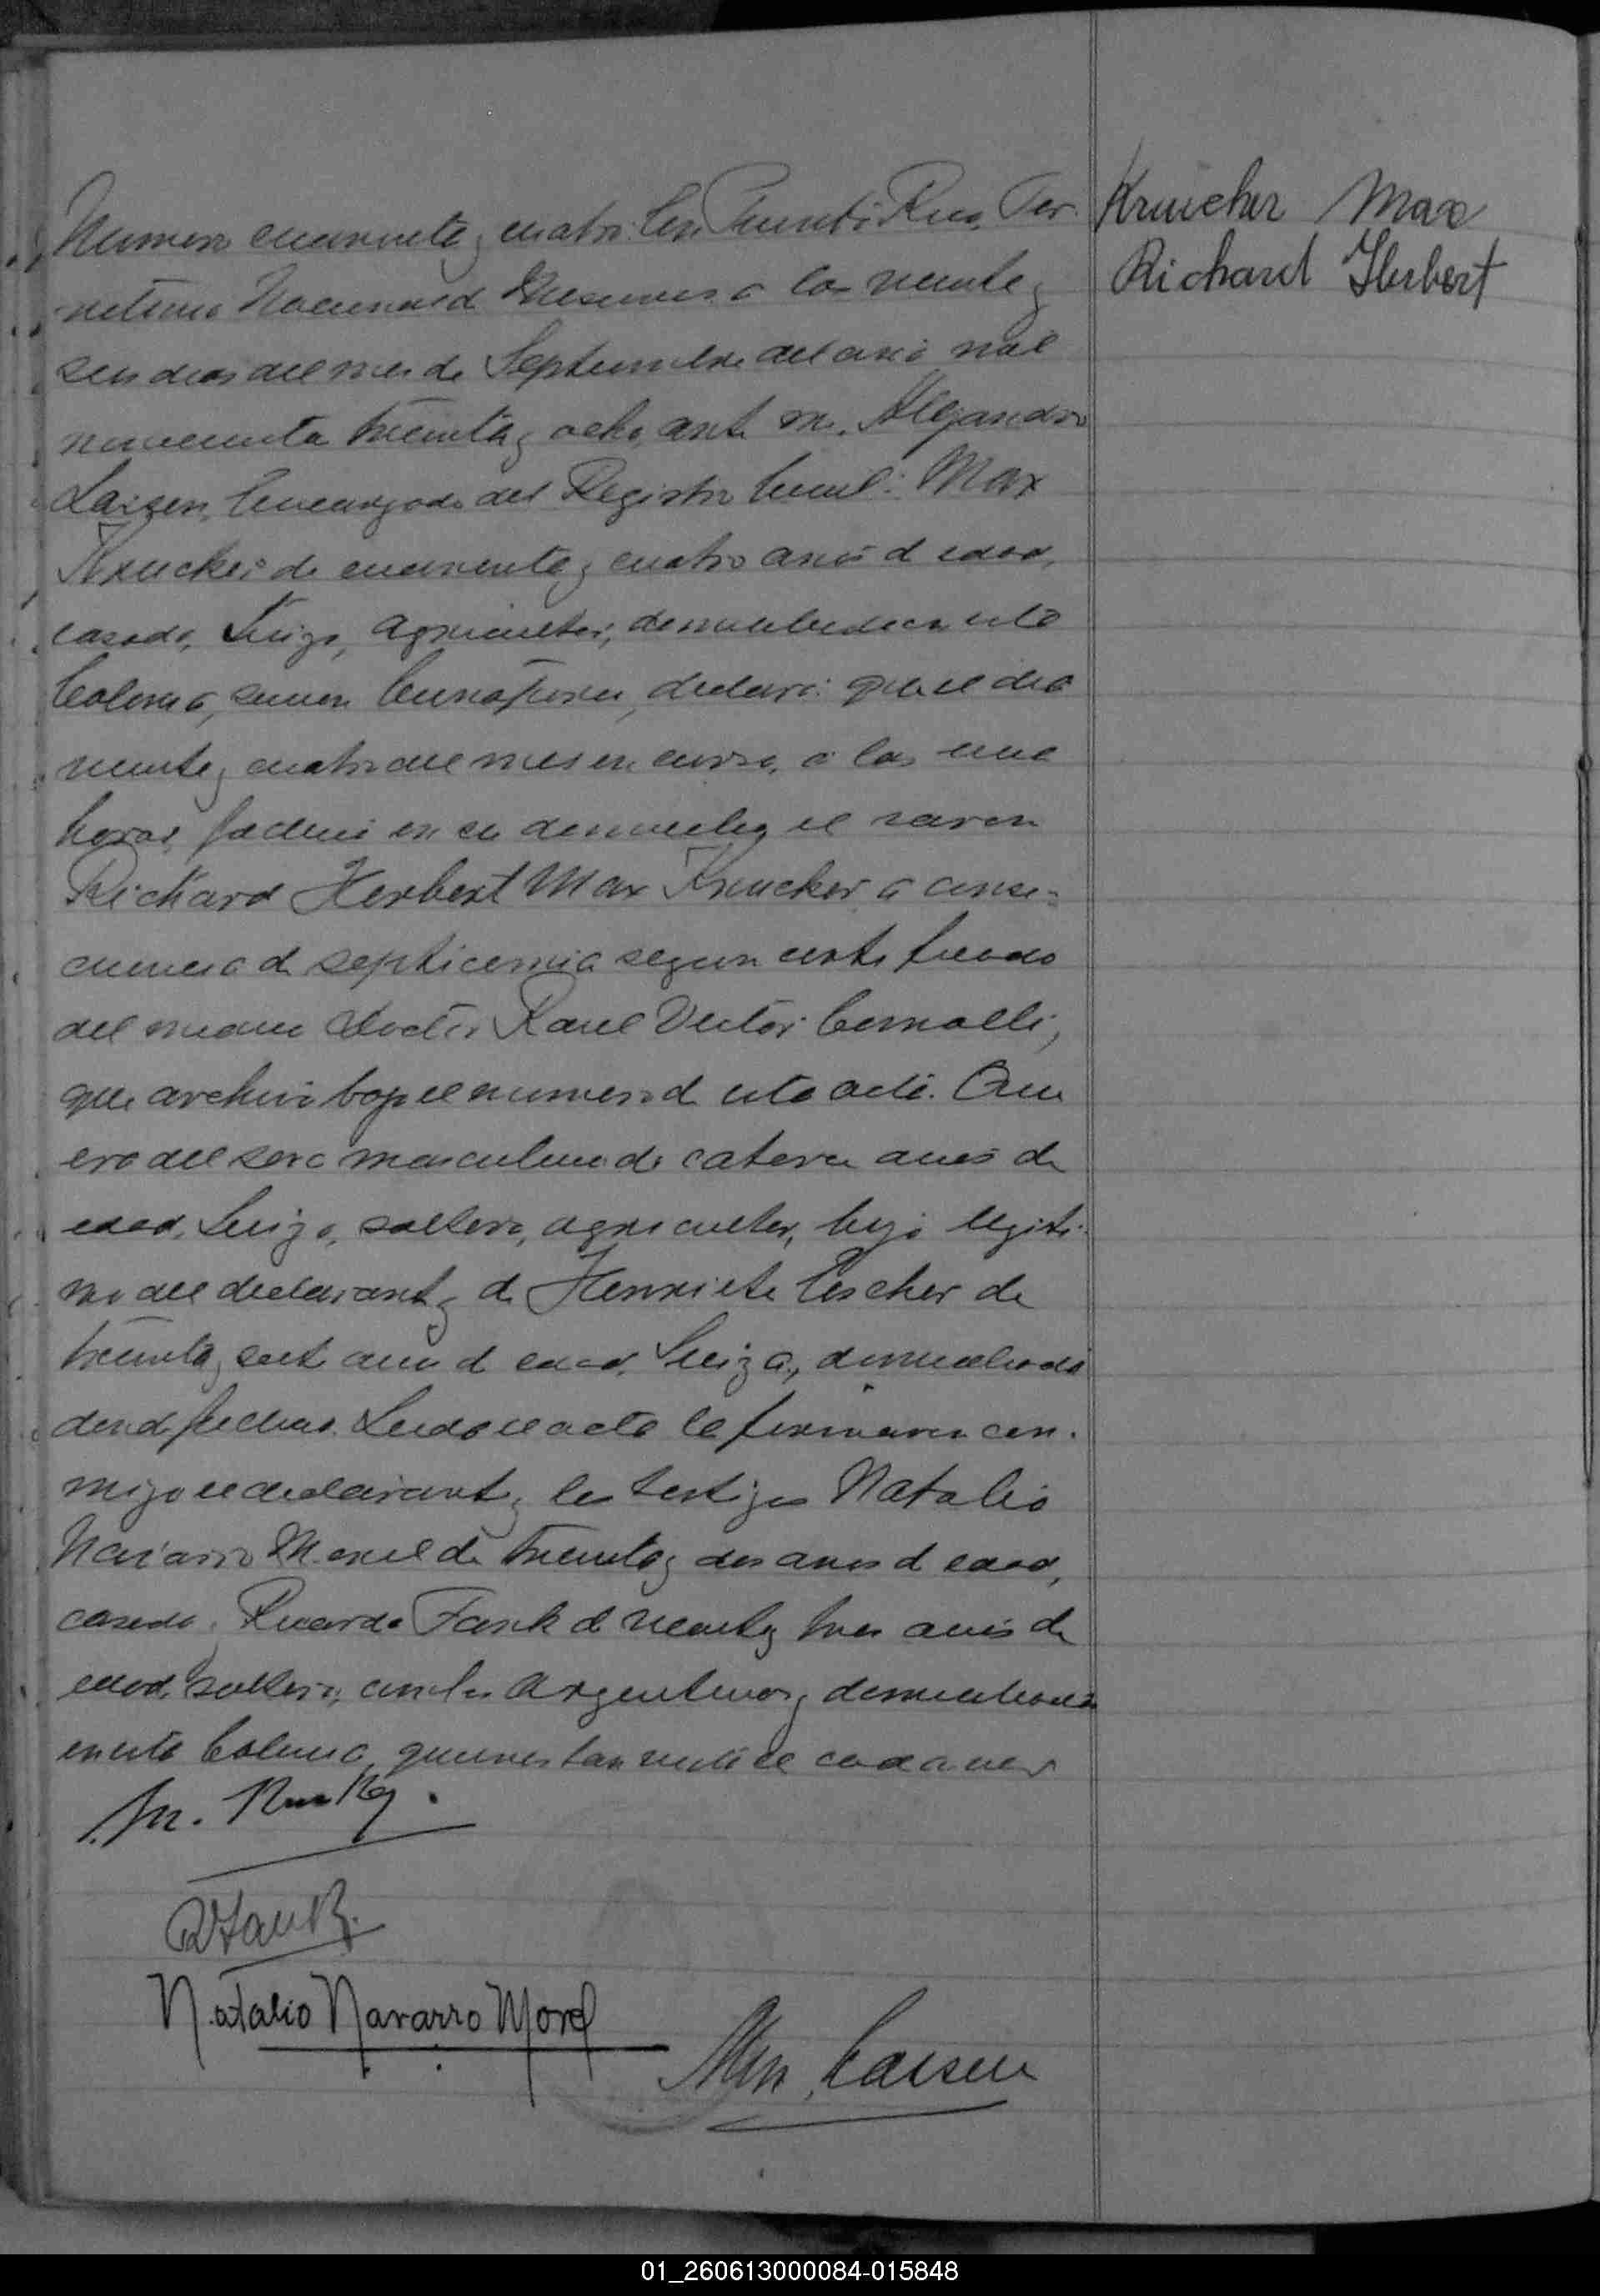 Numero cuarenta y cuatro. En Puerto Rico, Ter-
ritorio Nacional de Misiones a los veinte y
seis dias del mes de Septiembre del año mil
novecientos treinta y ocho, ante mi, Alejandro
Laisen, Encargado del Registro Civil: Max
Krucker de cuarenta y cuatro años de edad,
casado, Suizo, agricultor, domiciliado en esta
Colonia, declaró: que el dia
veinte y cuatro del mes en curso, a las
horas, falleció en su domicilio el varon
Richard Herbert Max Krucker a conse-
cuencia de septicemia segun certificado
del medico doctor Raul Victor
que archivo bajo el numero de esta acta. Que
era del sexo masculino de catorce años de
edad, Suizo, soltero, agricultor, hijo legiti-
mo del declarante y de Henriete Escher de
treinta y siete años de edad, Suiza, domiciliada
donde falleció. Leida el acta la firmaron con-
migo el declarante y los testigos Natalio
Navarro Morel de treinta y dos años de edad,
casado y Ricardo Fank de veinte y tres años de
edad, soltero, ambos Argentinos y domiciliados
en esta Colonia, quienes han visto el cadaver
M.
RFank
Natalio Navarro Morel
Laisen
Krucker Max
Richard Herbert
01_260613000084-015848